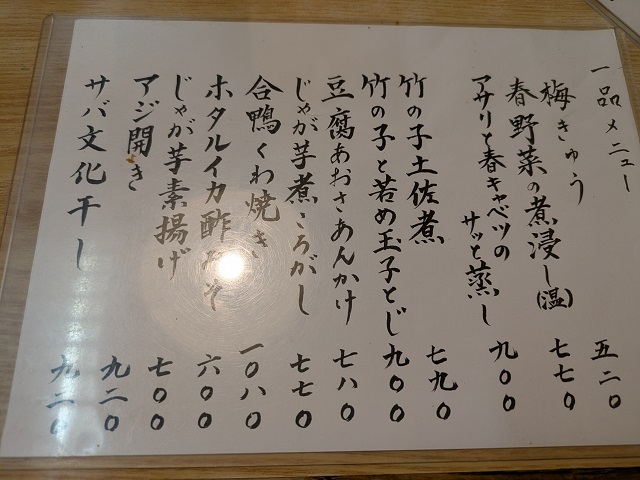 一品メニュー
梅きゅう 五二〇
春野菜の煮浸し(温) 七七〇
アサリと春キャベツの
サッと蒸し 九〇〇
竹の子土佐煮 七九〇
竹の子と若め玉子とじ 九〇〇
豆腐あおさあんかけ 七八〇
じゃが芋煮ころがし 七七〇
合鴨くわ焼き 一〇八〇
ホタルイカ酢みそ 六〇〇
じゃが芋素揚げ 七〇〇
アジ開き 九二〇
サバ文化干し 九二〇